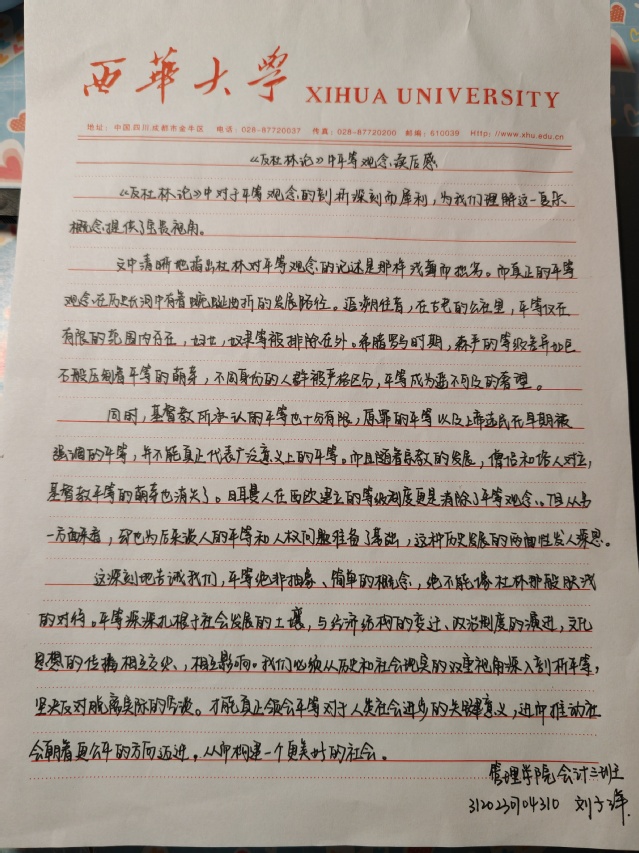 西华大学 XIHUA UNIVERSITY
地址：中国四川成都市金牛区 电话：028-87720037 传真：028-87720200 邮编：610039 Http://www.xhu.edu.cn
《反杜林论》中平等观念读后感
《反杜林论》中对于平等观念的剖析深刻而犀利，为我们理解这一复杂
概念提供了宝贵视角。
文中清晰地指出杜林对平等观念的论述是那样浅薄而拙劣。而真正的平等
观念在历史长河中有着蜿蜒曲折的发展路径。追溯往昔，在古老的公社里，平等仅在
有限的范围内存在，妇女，奴隶等被排除在外。希腊罗马时期，森严的等级差异如巨
石般压制着平等的萌芽，不同身份的人群被严格区分，平等成为遥不可及的奢望。
同时，基督教所承认的平等也十分有限，原罪的平等以及上帝选民在早期被
强调的平等，并不能真正代表广泛意义上的平等。而且随着宗教的发展，僧侣和俗人对立，
基督教平等的萌芽也消失了。日耳曼人在西欧建立的等级制度更是消除了平等观念、但从另
一方面来看，却也为后来谈人的平等和人权问题准备了基础，这种历史发展的两面性发人深思。
这深刻地告诫我们，平等绝非抽象、简单的概念，绝不能像杜林那般肤浅
的对待。平等深深扎根于社会发展的土壤，与经济结构的变迁、政治制度的演进，文化
思想的传播相互交火、相互影响。我们必须从历史和社会现实的双重视角深入剖析平等，
坚决反对脱离实际的空谈。才能真正领会平等对于人类社会进步的关键意义，进而推动社
会朝着更公平的方向迈进。从而构建一个更美好的社会。
管理学院会计三班
3120230904310 刘子